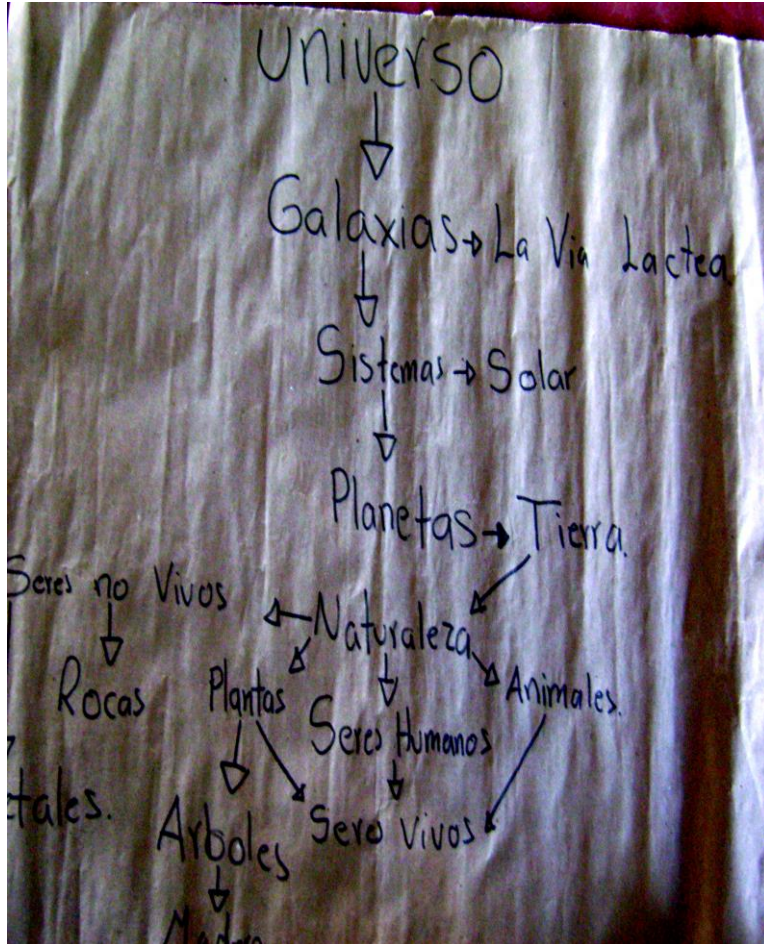 Universo
Galaxias → La Via Lactea
Sistemas → Solar
Planetas → Tierra.
Seres no Vivos
Naturaleza
Rocas
Plantas
Animales.
Seres Humanos
Arboles
Seres Vivos